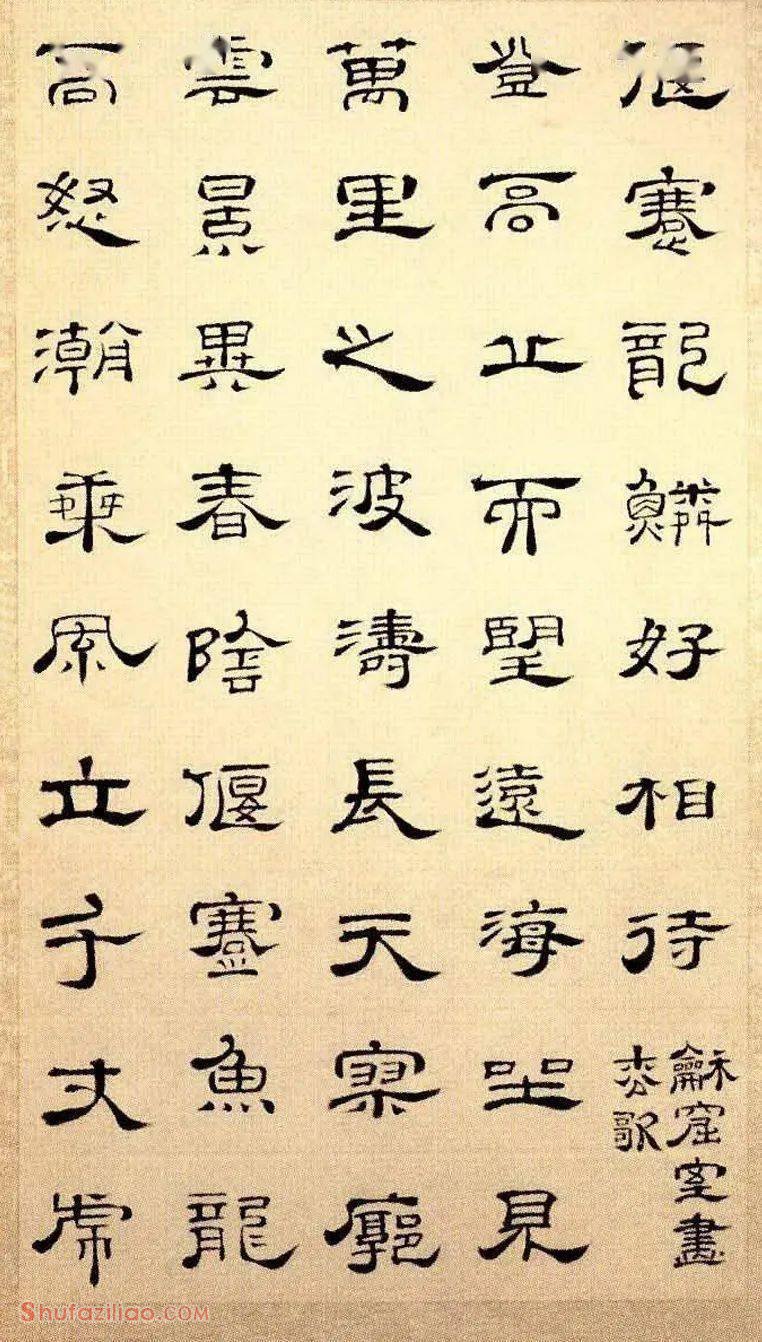 偃蹇龍鱗好相待
龢窟室畫
枀歌
登高丘而望遠海坐見
萬里之波濤長天寥廓
雲景異春陰偃蹇魚龍
高怒潮乘風立千丈虎
Shufaziliao.COM